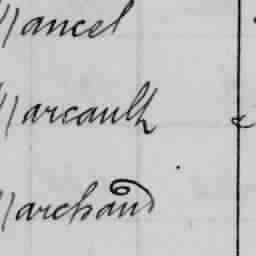 Mancel
Marcault
Marchand